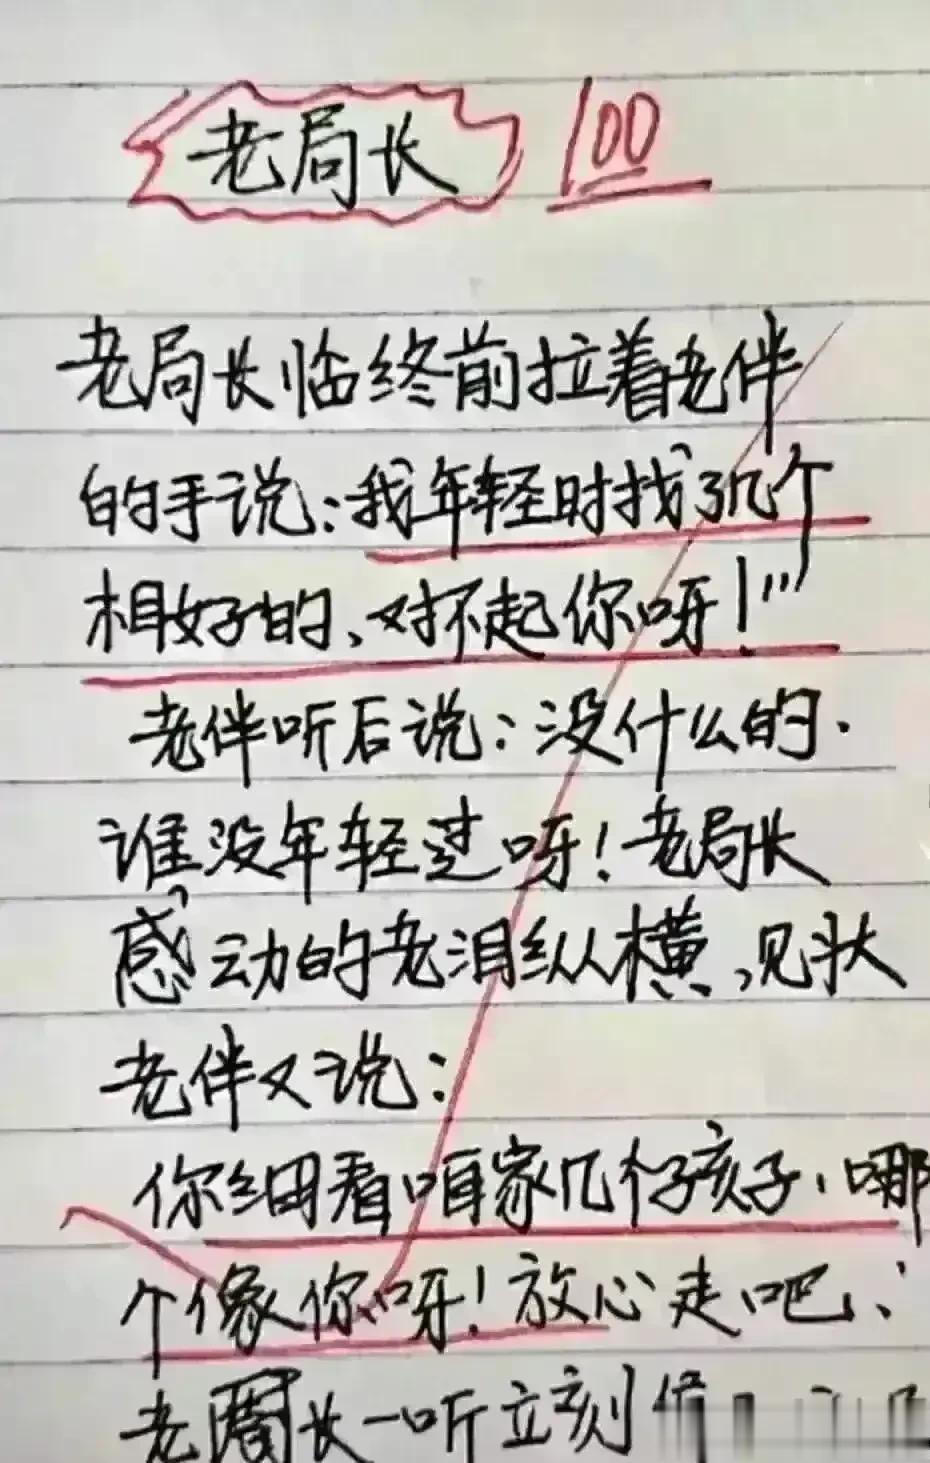 老局长 100
老局长临终前拉着老伴
的手说：我年轻时找了几个
相好的、对不起你呀！"
老伴听后说：没什么的.
谁没年轻过呀！老局长
感动的老泪纵横,见状
老伴又说：
你细看咱家几个孩子、哪
个像你呀！放心走吧、
老局长一听立刻